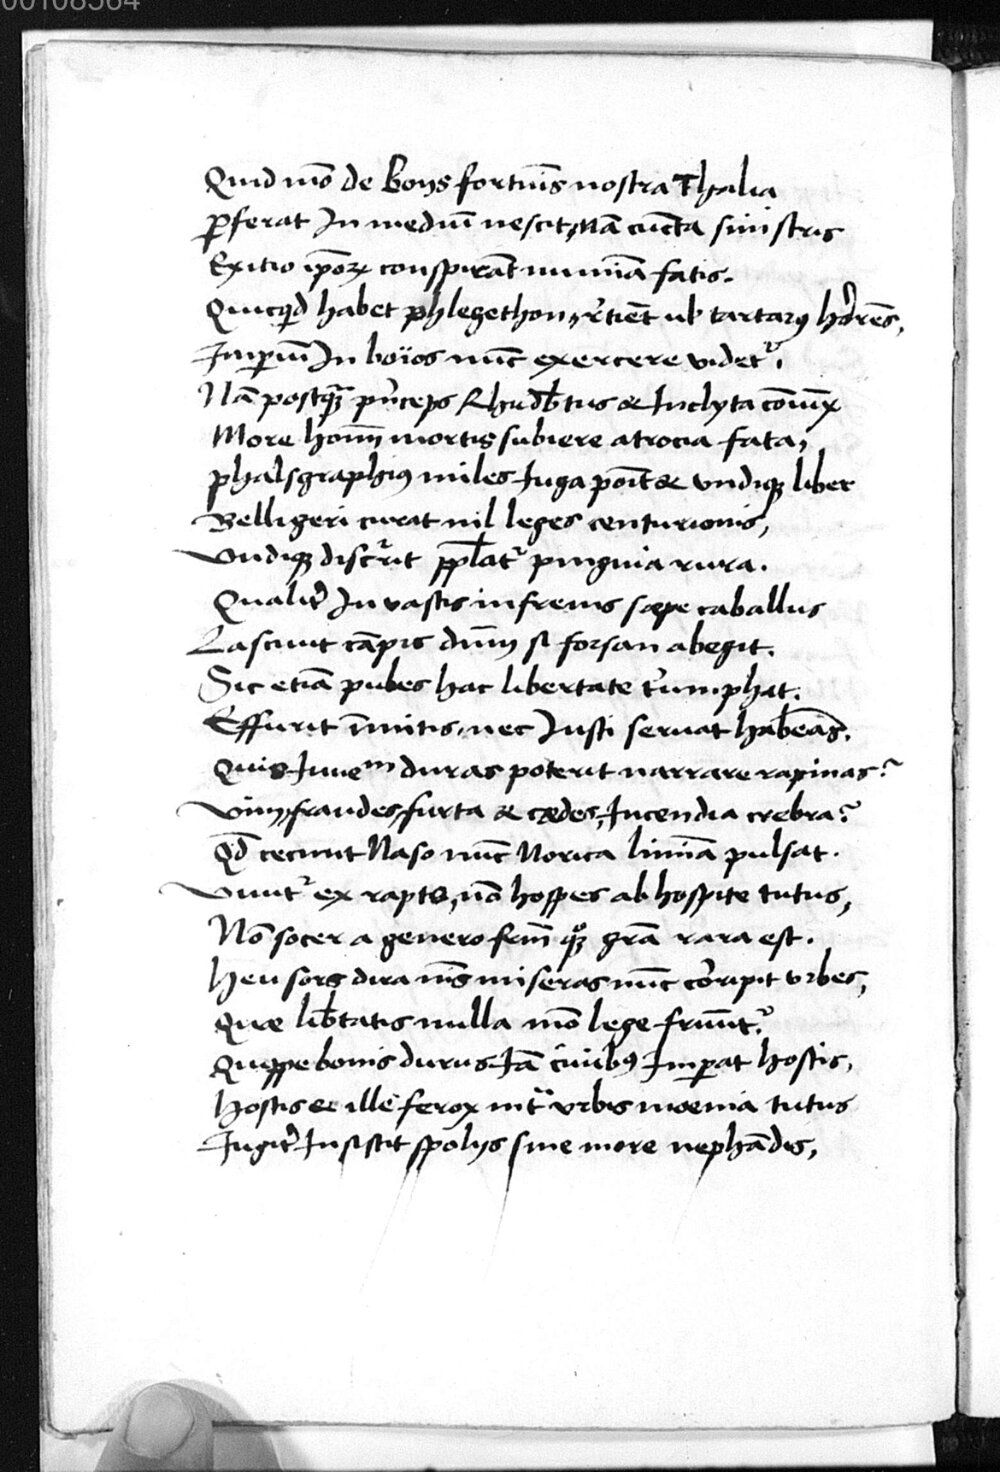 00108564
Quid mō de Boijs fortunīs nostra Thalia
ꝑferat In mediū nescit, Nā cūcta sinistris
Exitio ipōꝝ conspirāt numīa fatis.
Quicqd habet phlegethon,
Imꝑiū In boïos nūc exercere videtᷣ.
Nā postꝗ̄ pͥnceps Rhudb̄tus & Inclyta cōiūx
More homī mortis subiere atrocia fata,
phalsgraphiꝰ miles Iuga ponīt & vndiqꝫ liber
Belligeri curat nil leges centurionis,
Vndiqꝫ discͬrit pp̄latᷣ pinguia rura.
Qualitͤ In vastis infrenis sæpe caballus
Lasciuit cāpis dn̄m si forsan abegit.
Sic etiā pubes hac libertate tͥumphat.
Effurit īmitis, nec Iusti seruat hab̄eās.
Quis Iuueᵐ duras poterit narrare rapinas?
Vim, fraudes, furta & cædes, Incendia crebra?
Qd̄ cecinit Naso nūc Norica limīa pulsat.
Viuitᷣ ex rapto, nō hospes ab hospite tutus,
Nō socer a genero frm̄ qꝫ grā rara est.
Heu sors dira nīs miseras nūc cōripit vrbes,
Quæ lib̄tatis nulla mō lege fruūtᷣ?
Quippe bonis durus Iā ciuibꝰ Imꝑat hostis,
Hostis & ille ferox intᷣ vrbis moenia tutus
Iugitͤ Insistit spolijs sine more nephādis,